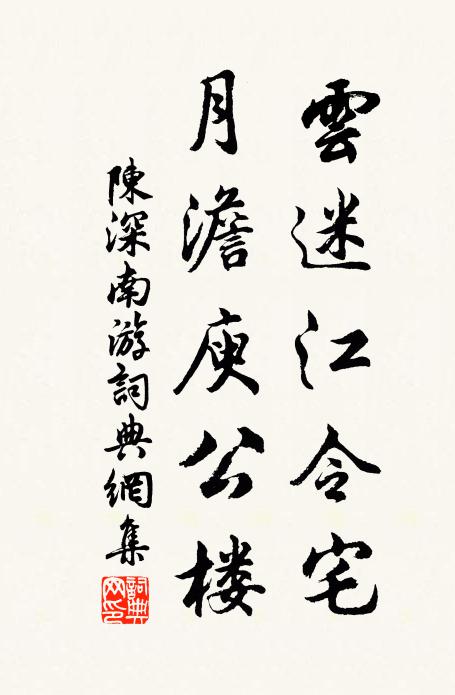 雲迷江令宅
月澹庾公楼
陳深南游詞典網集
詞典网印